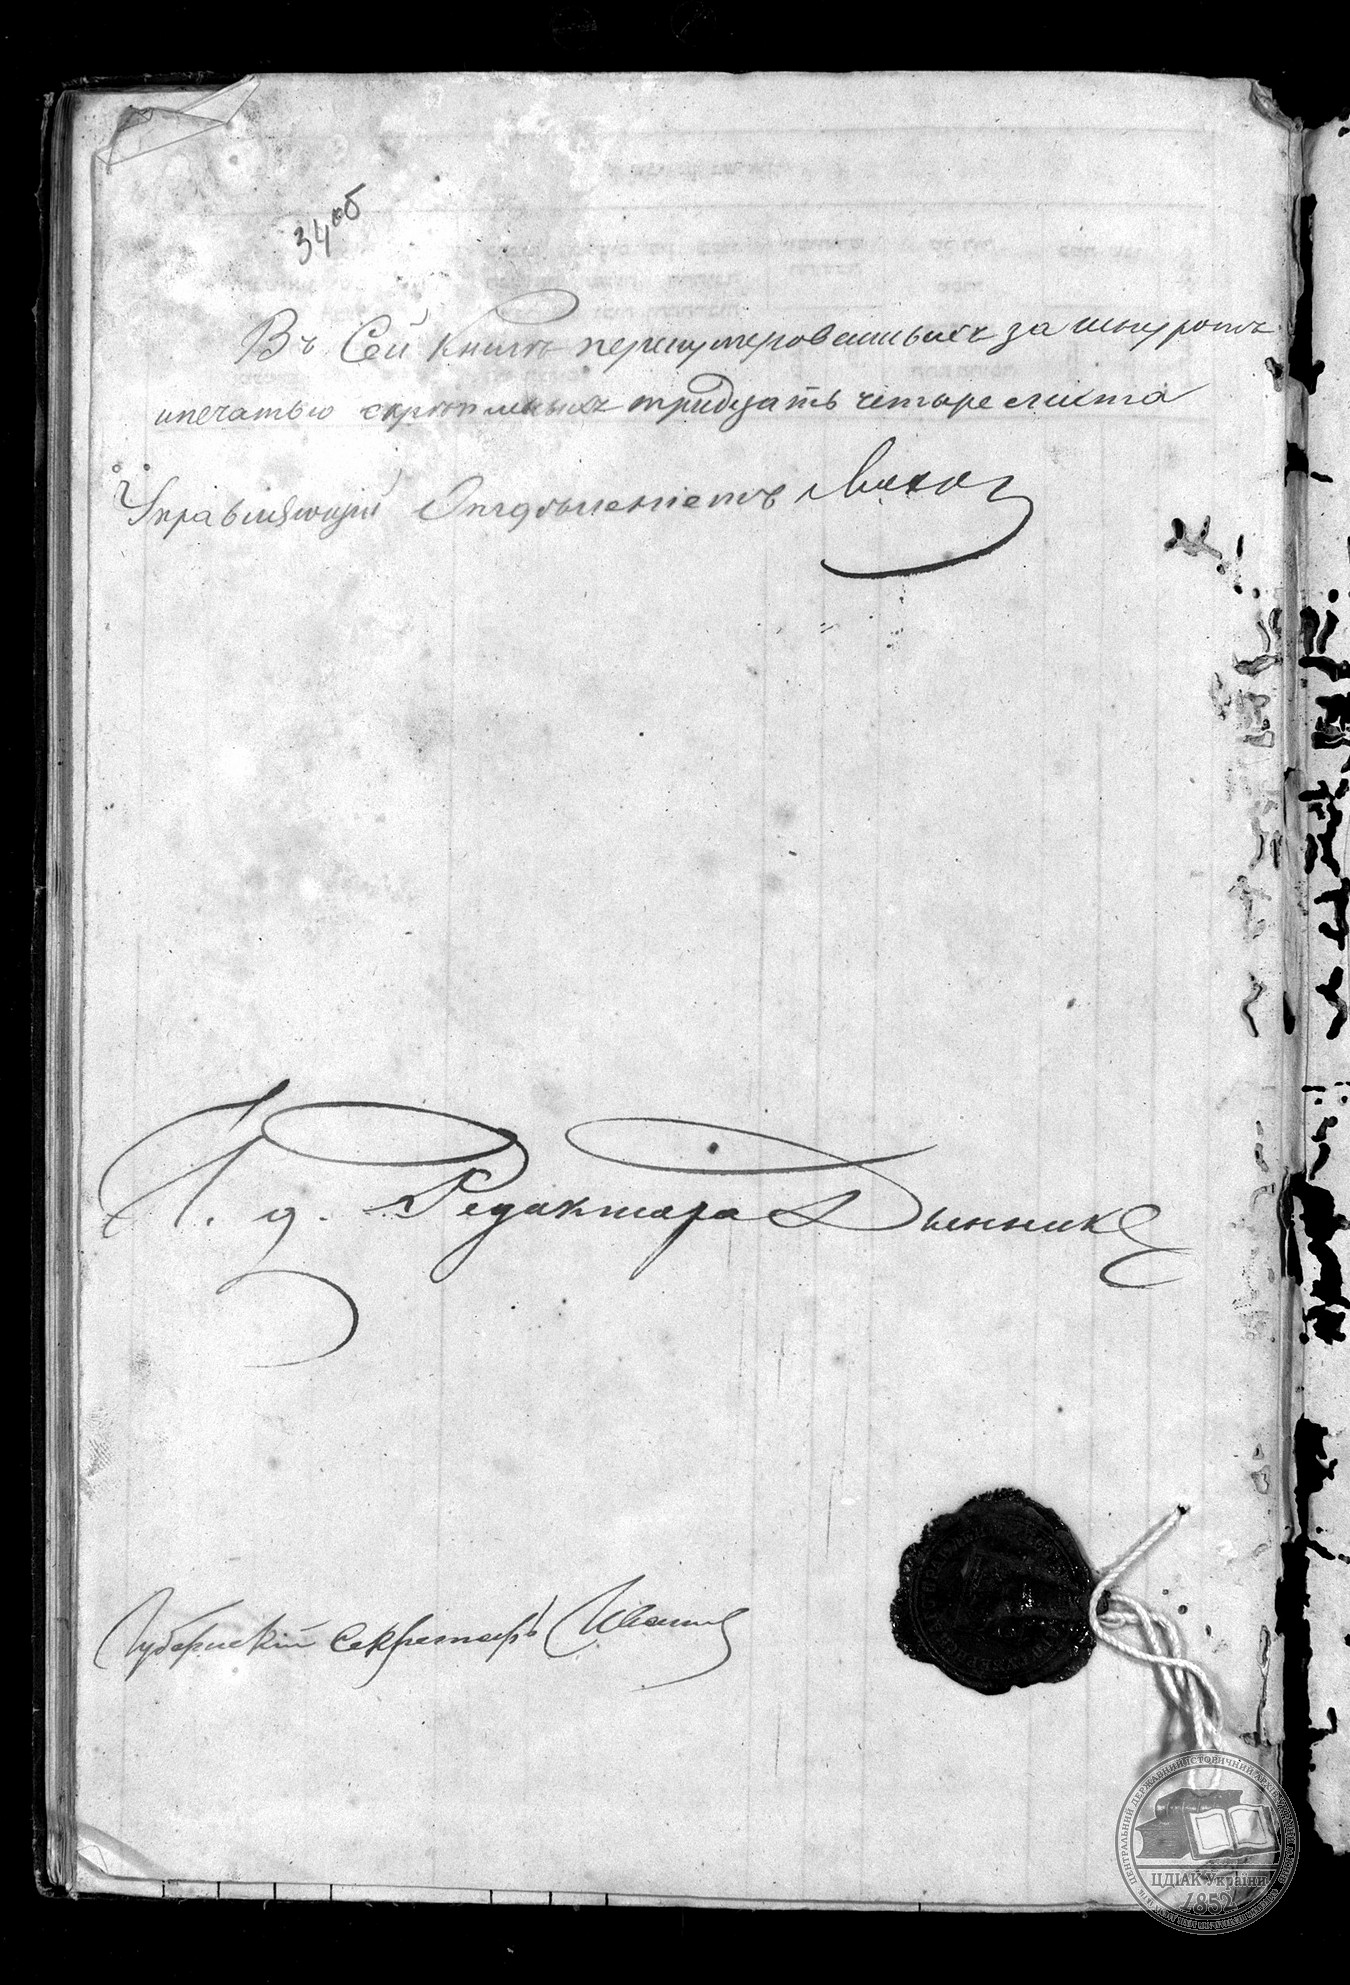 34 об
Въ Сей Книгѣ перенумерованныхъ за шнуромъ
ипечатью скрѣпленныхъ тридцать четыре листа
Управляющій Отдѣленіемъ
И. д. Редактора Дынник
Губернскій Секретарь
ЦЕНТРАЛЬНИЙ ДЕРЖАВНИЙ ІСТОРИЧНИЙ АРХІВ УКРАЇНИ
ЦДІАК України
1852